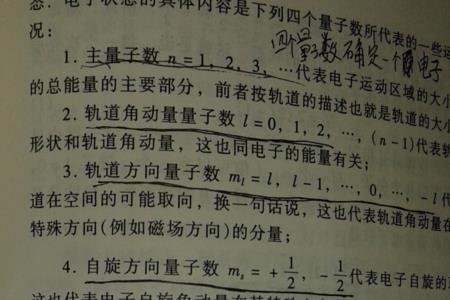 态. 电子状态的具体内容是下列四个量子数所代表的一些运
况:
四个量子数确定一个电子
1. 主量子数 n = 1, 2, 3, …代表电子运动区域的大小
的总能量的主要部分, 前者按轨道的描述也就是轨道的大小
2. 轨道角动量量子数 l = 0, 1, 2, …, (n-1)代表轨
形状和轨道角动量, 这也同电子的能量有关;
3. 轨道方向量子数 mₗ = l, l-1, …, 0, …, -l代
道在空间的可能取向, 换一句话说, 这也代表轨道角动量在
特殊方向(例如磁场方向)的分量;
4. 自旋方向量子数 mₛ = + 1/2, - 1/2代表电子自旋的
这也代表电子自旋角动量在某特殊方